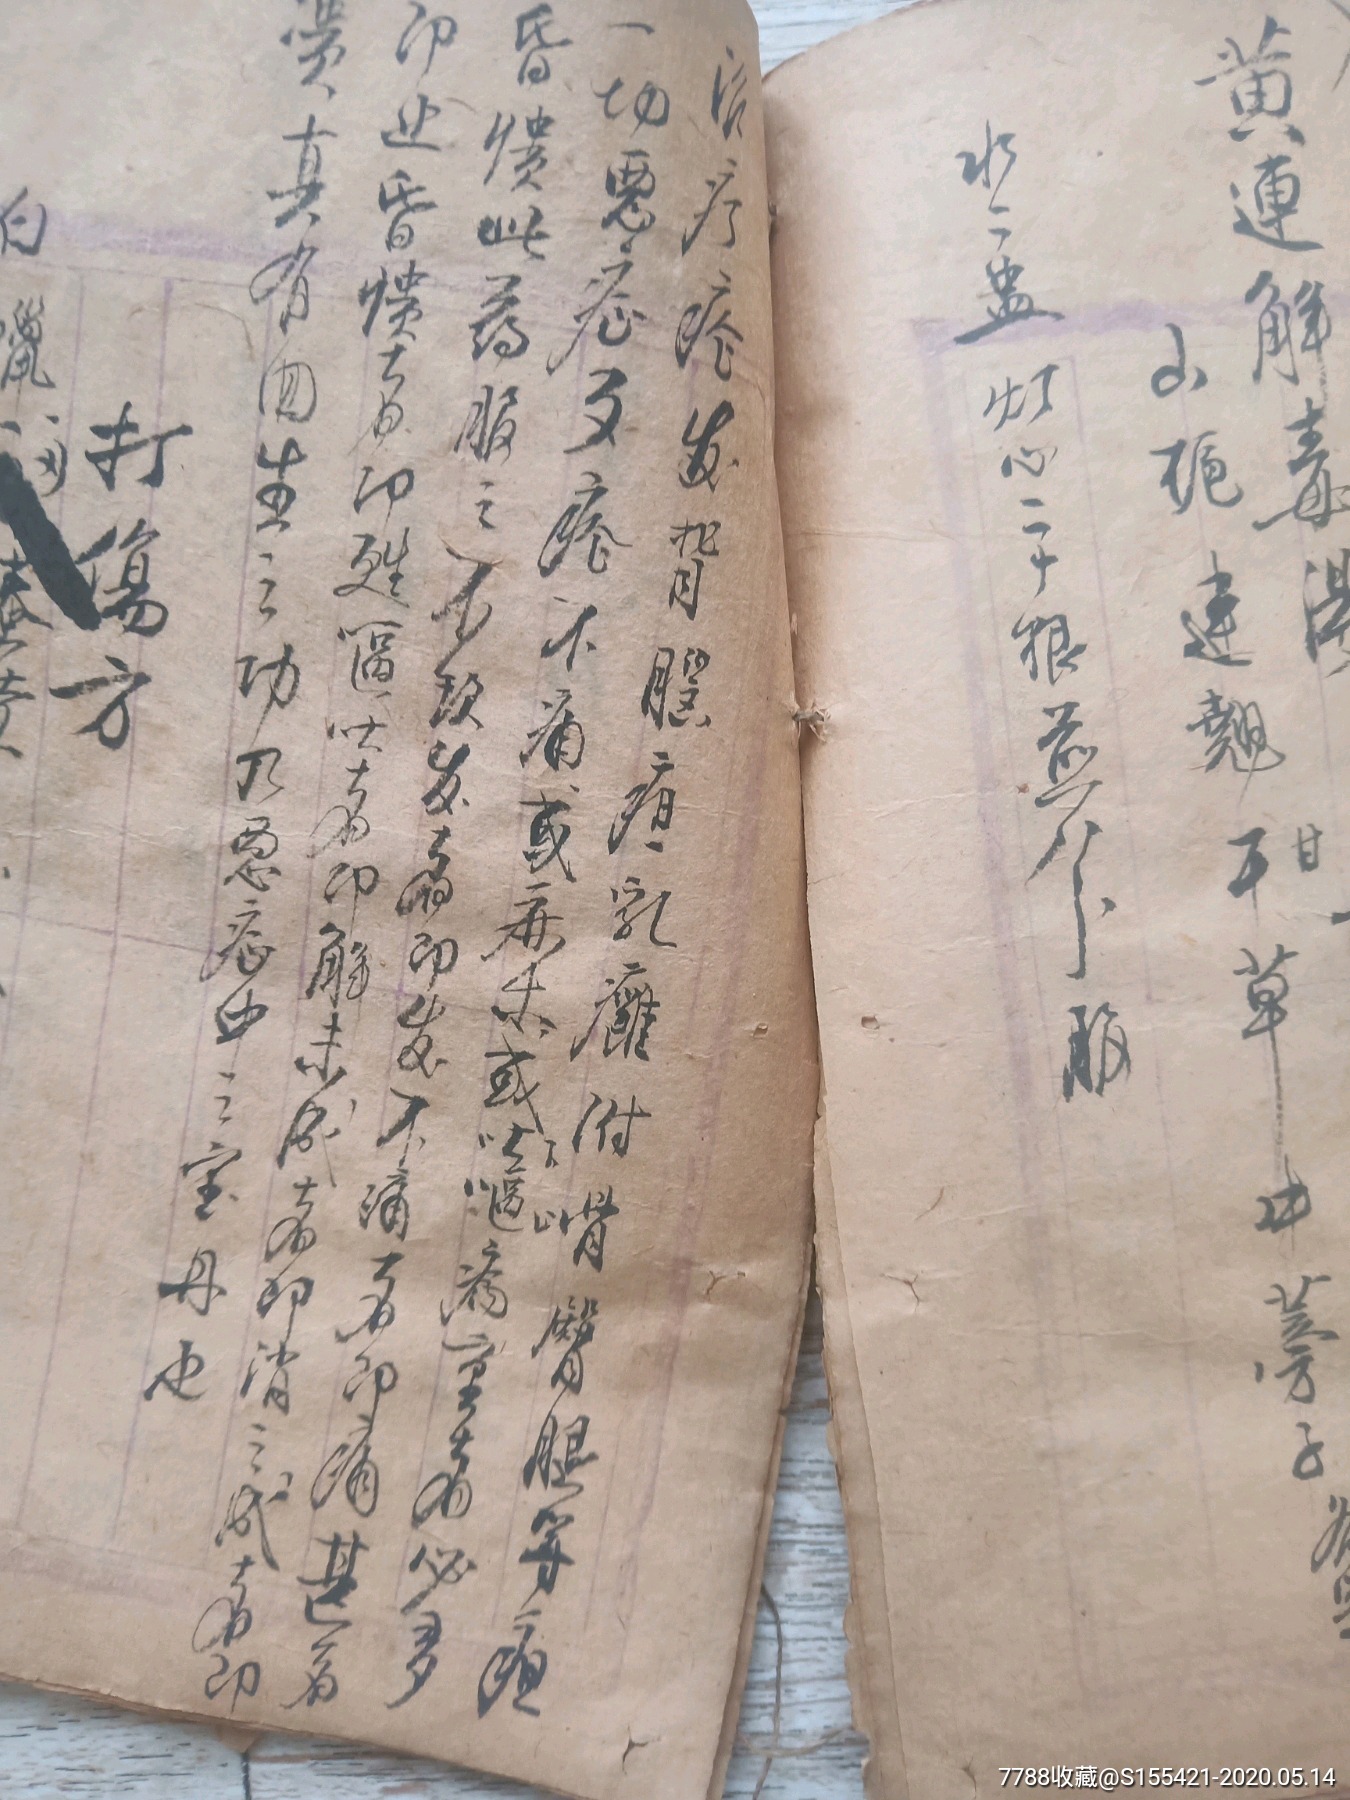 黄連解毒湯
甘
山梔 連翹 干草 牛蒡子
水二盅 灯心二十根 煎八分 服
治疔瘡发背腦疽乳癰附骨臀腿等疽
一切惡症歹瘡不痛或麻木或嘔吐病重者必多
昏愦此药服之不起发者即发不痛者即痛甚者
即止昏愦者即甦嘔吐者即解未成者即消已成者即
潰真有回生之功乃惡症中之宝丹也
打傷方
白蠟